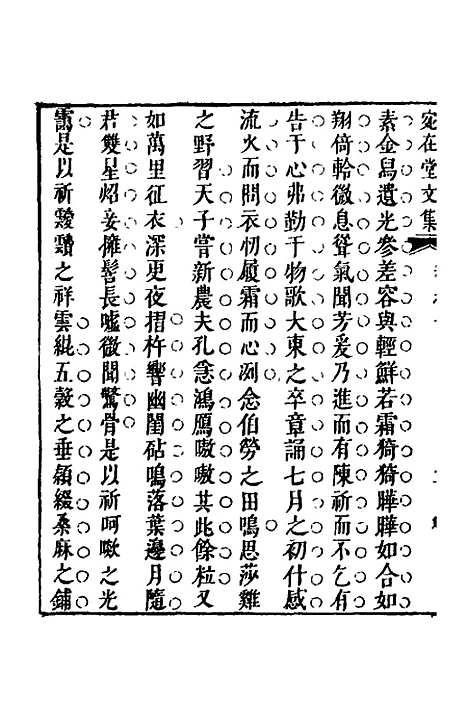 宛在堂文集
素金舄遺光參差容與輕鮮若霜猗猗曄曄如合如
翔倚軨微息聳氣聞芳爰乃進而有陳祈而不乞有
告于心弗勤干物歌大東之卒章誦七月之初什感
流火而問衣忉履霜而心洌念伯勞之田鳴思莎雞
之野習天子嘗新農夫孔惫鴻鴈嗷嗷其此餘粒又
如萬里征衣深更夜搢杵響幽閨砧鳴落葉邊月隨
君雙星炤妾傭髻長噓微聞驚骨是以祈呵嗽之光
是以祈靉靆之祥雲緄五縠之垂頴綴桑麻之鋪